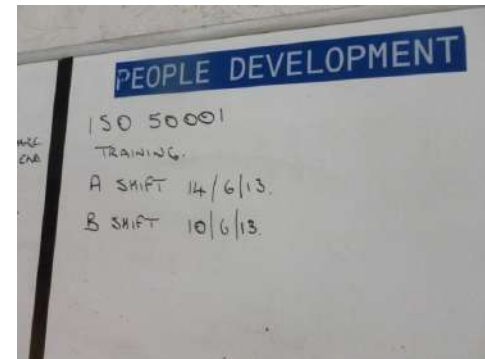 PEOPLE DEVELOPMENT
ISO 50001
TRAINING.
A SHIFT 14/6/13.
B SHIFT 10/6/13.